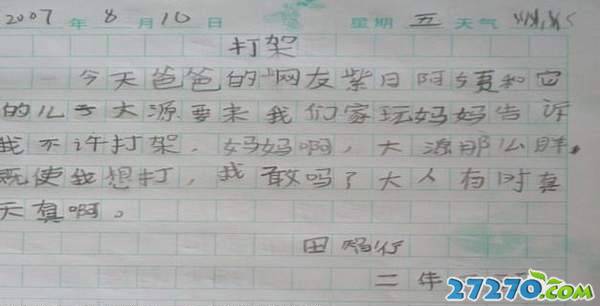 2007年8月10日 星期五天气
打架
今天爸爸的网友紫日阿须和它
的儿子大源要来我们家玩妈妈告诉
我不许打架.妈妈啊,大源那么胖,
既使我想打,我敢吗?大人有时真
天真啊。
田
二年
27270.com